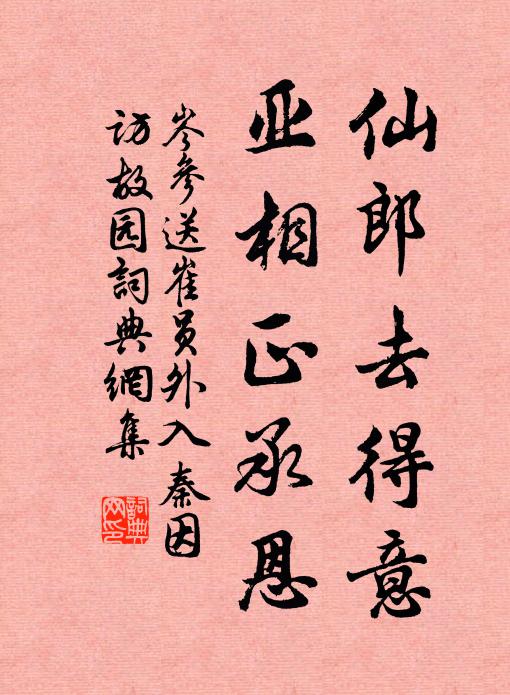 仙郎去得意
亚相正承恩
岑參送崔员外入秦因
访故园詞典網集
詞典网印